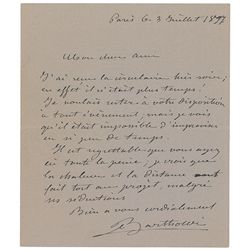 Paris le 3 Juillet 1897
Mon cher ami
J'ai reçu la circulaire hier soir;
en effet il n'était plus temps!
Je voulais rester à votre disposition
à tout évènement; mais je vois
qu'il était impossible d'improviser
en si peu de temps.
Il est regrettable que vous ayez
eu toute la peine; je crois que
la chaleur et la distance ont
fait tort au projet, malgré
ses séductions
Bien à vous cordialement
Bartholdi